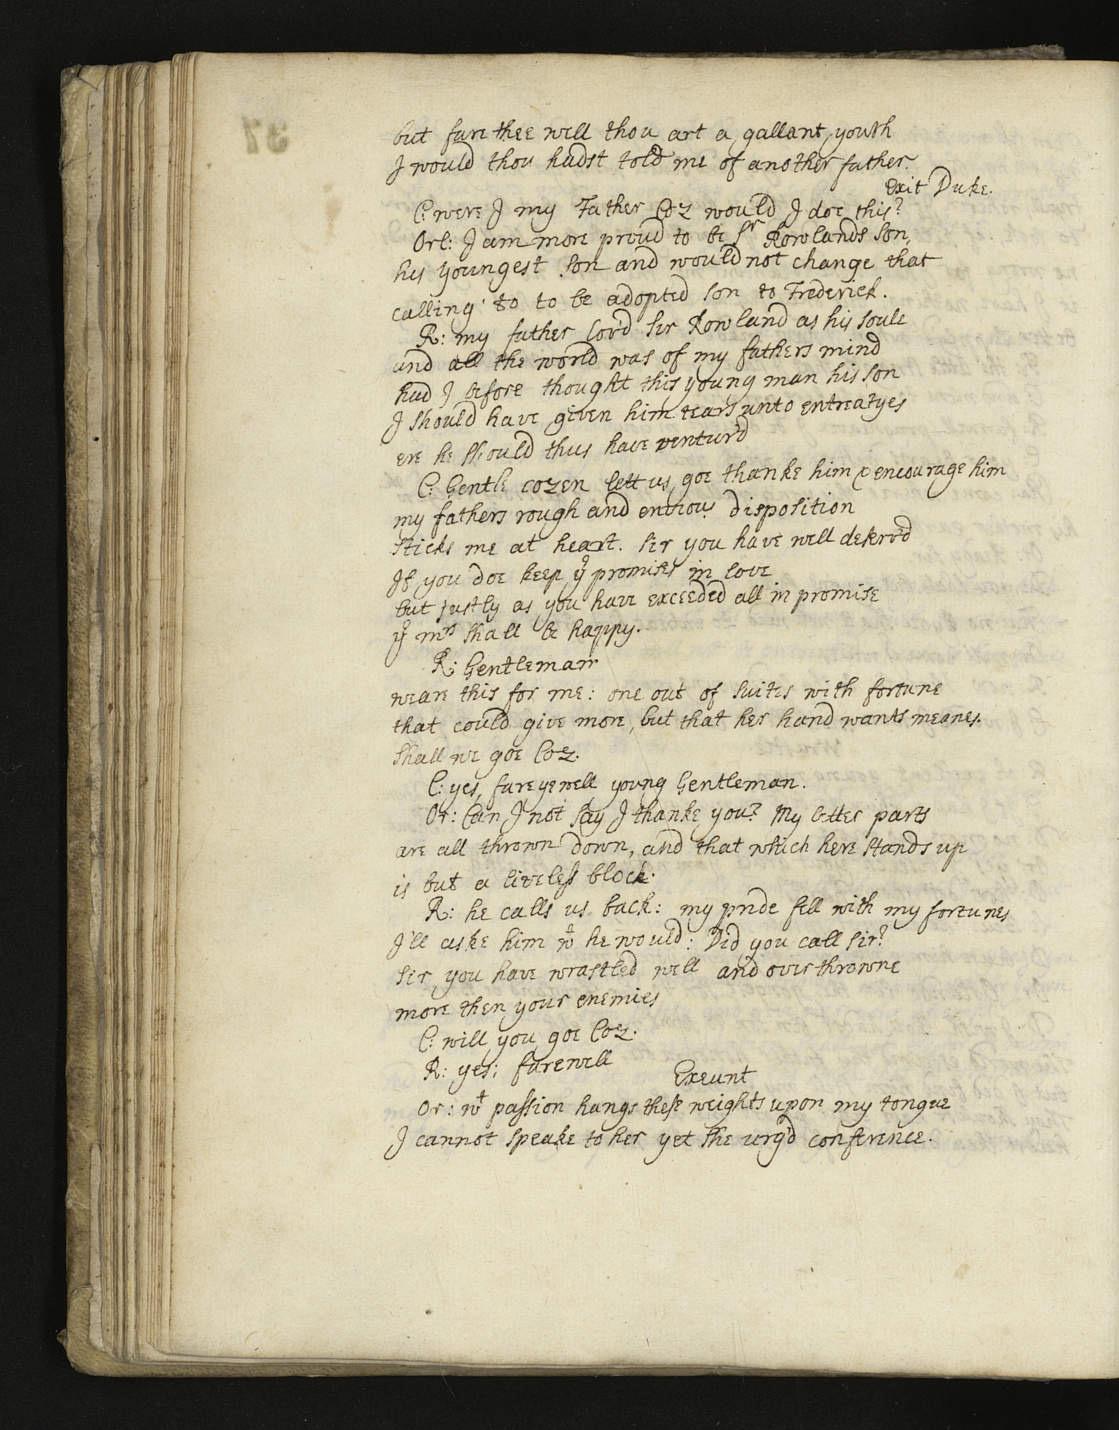 but fare thee well thou art a gallant youth
I would thou hadst told me of another father.
Exit Duke.
C: were I my Father Coz would I doe this?
Orl: I am more proud to be Sr Rowlands Son,
his youngest Son and would not change that
calling to to be adopted son to Frederick.
R: my father lov'd Sir Rowland as his soule
and all the world was of my fathers mind
had I before thought this young man his son
I should have given him tears unto entreatyes
ere he should thus have ventur'd
C: Gentle cozen lett us goe thanke him & encourage him
my fathers rough and envious disposition
sticks me at heart. Sir you have well deserv'd
If you doe keep yr promises in love
but justly as you have exceeded all in promise
yr mrs shall be happy.
R: Gentleman
weare this for me: one out of suites with fortune
that could give more, but that her hand wants meanes.
Shall we goe Coz.
C: yes, fare ye well young Gentleman.
Or: Can I not say I thanke you? My better parts
are all thrown down, and that which here stands up
is but a liveless block.
R: he calls us back: my pride fell with my fortunes
I'll aske him wt he would: Did you call Sir?
Sir, you have wrastled well and overthrowne
more then your enemies
C: will you goe Coz.
R: yes; farewell
Exeunt
Or: wt passion hangs these weights upon my tongue
I cannot speake to her yet she urg'd conference.
37